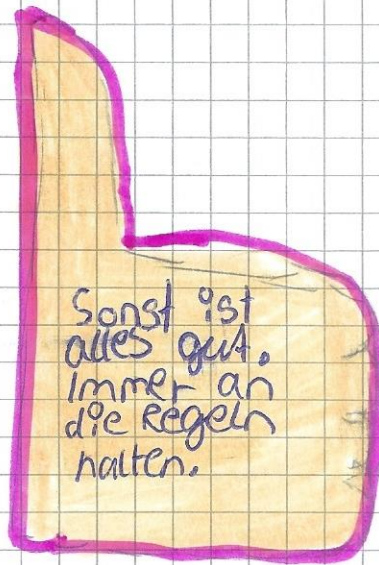 Sonst ist
alles gut.
Immer an
die Regeln
halten.